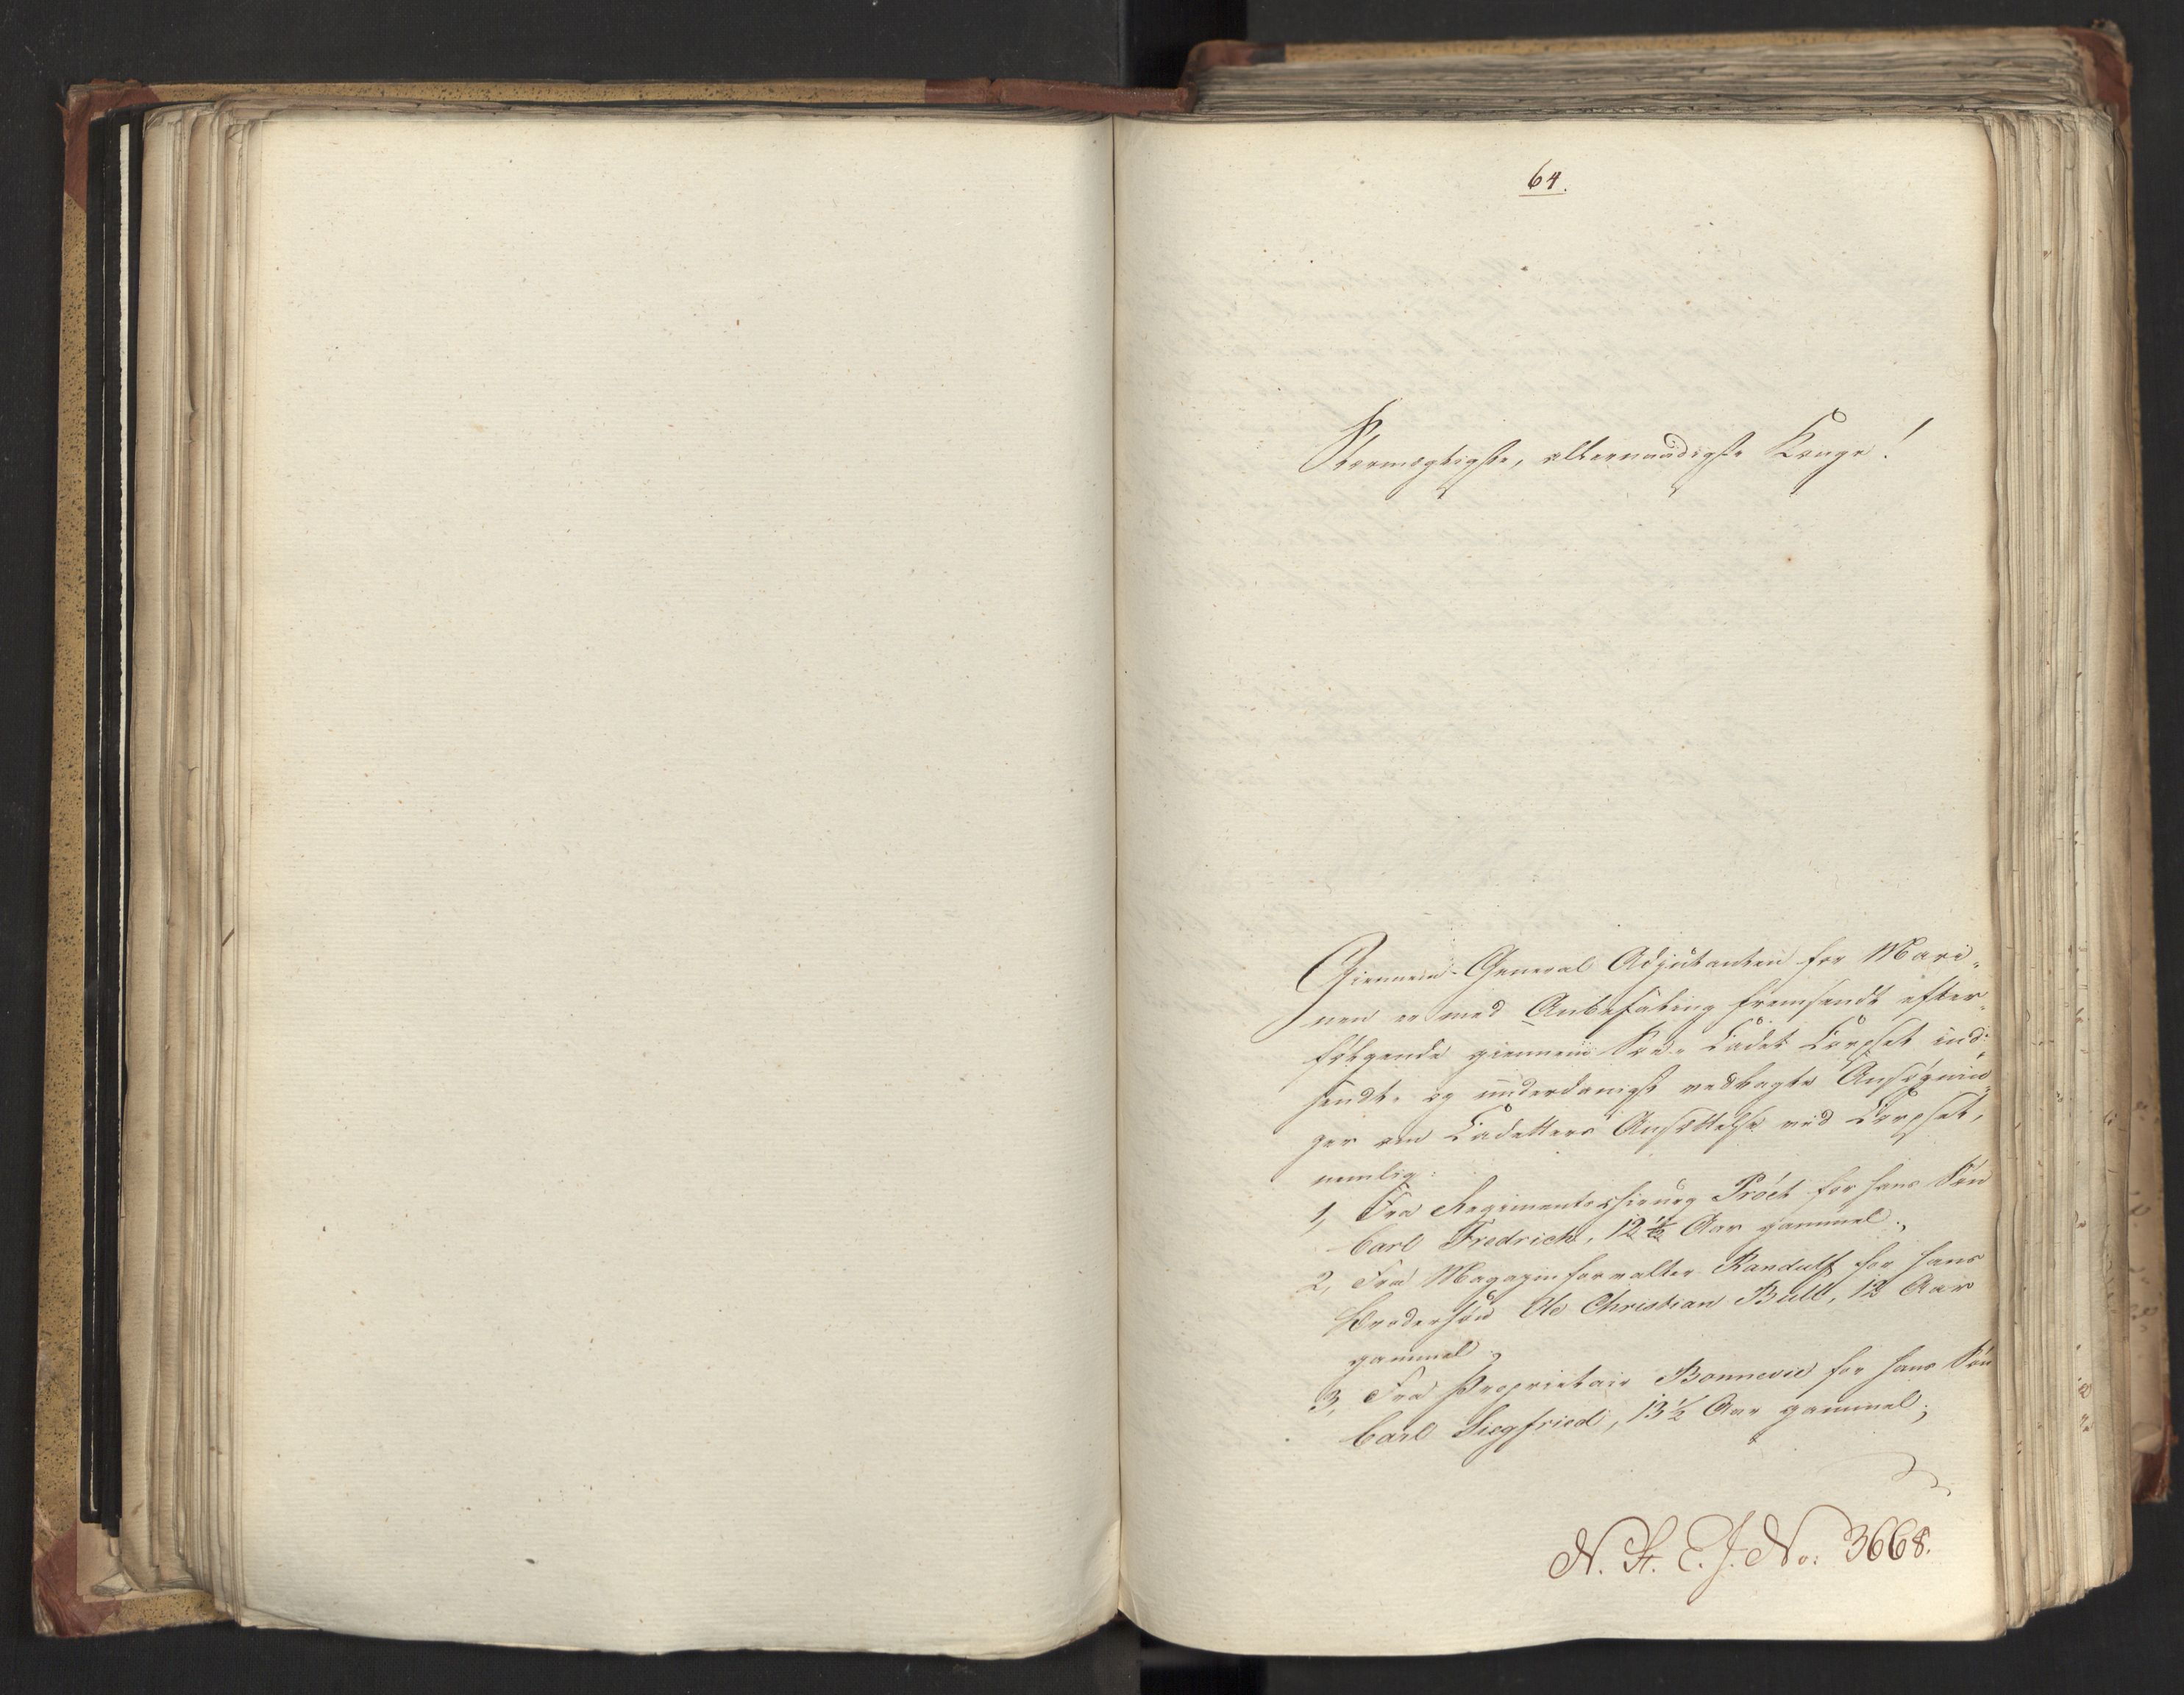 64.
Stormægtigste, allernaadigste Konge!
Giennem General Adjutanten for Mari-
nen er med Anbefaling fremsendt efter-
følgende giennem Søe-Cadet Corpset ind-
sendte og underdanigst vedlagte Ansøgnin-
ger om Cadetters Ansættelse ved Corpset,
nemlig:
1, Fra Regimentschirurg Pröet for hans Søn
Carl Fredrich, 12 1/2 Aar gammel;
2, Fra Magazinforvalter Randulf for hans
Brodersøn Ole Christian Bull, 12 Aar
gammel;
3, Fra Proprietair Bonnevie for hans Søn
Carl Siegfried, 13 1/2 Aar gammel;
N. St. E. J. No: 3668.